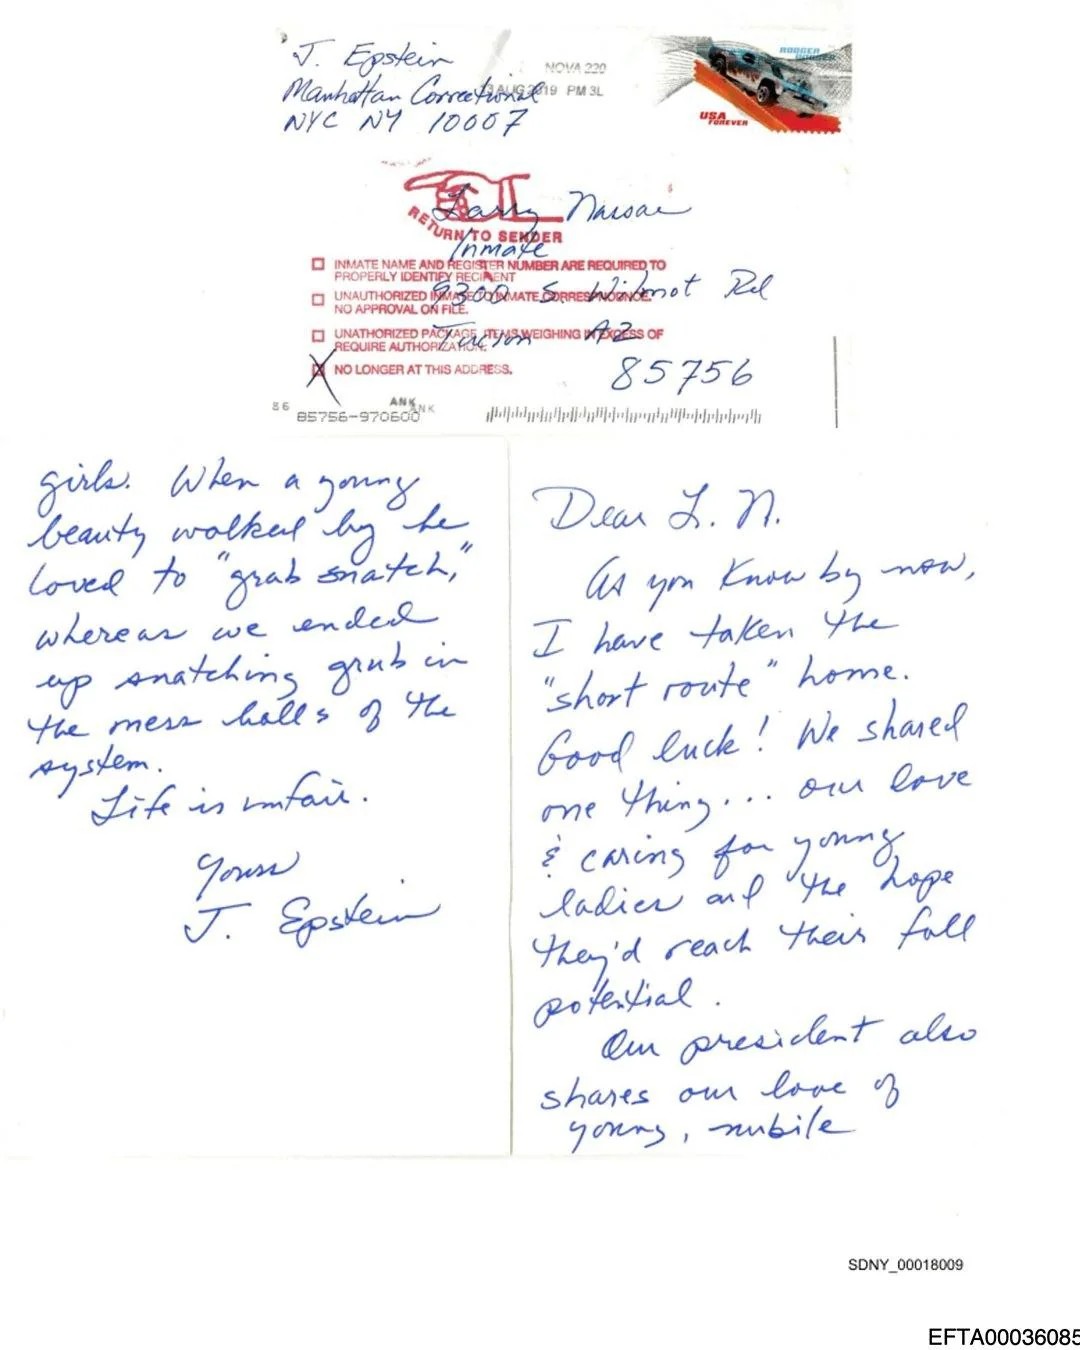 J. Epstein
Manhattan Correctional
NYC NY 10007
NOVA 220
AUG 2019 PM 3L
RODGER
USA
FOREVER
RETURN TO SENDER
Larry Nassar
Inmate
9300 S. Wilmot Rd
Tucson AZ
85756
INMATE NAME AND REGISTER NUMBER ARE REQUIRED TO
PROPERLY IDENTIFY RECIPIENT
UNAUTHORIZED INMATE TO INMATE CORRESPONDENCE.
NO APPROVAL ON FILE.
UNATHORIZED PACKAGE, ITEMS WEIGHING IN EXCESS OF
REQUIRE AUTHORIZATION.
NO LONGER AT THIS ADDRESS.
86
ANK
ANK
85756-970600
Dear L. N.
As you know by now,
I have taken the
"short route" home.
Good luck! We shared
one thing... our love
& caring for young
ladies and the hope
they'd reach their full
potential.
Our president also
shares our love of
young, nubile
girls. When a young
beauty walked by he
loved to "grab snatch,"
whereas we ended
up snatching grub in
the mess halls of the
system.
Life is unfair.
Yours
J. Epstein
SDNY_00018009
EFTA00036085